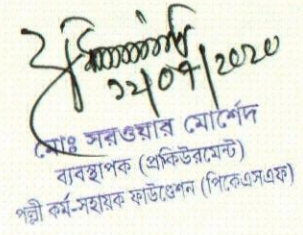 ১২/০৭/২০২০
মোঃ সরওয়ার মোর্শেদ
ব্যবস্থাপক (প্রকিউরমেন্ট)
পল্লী কর্ম-সহায়ক ফাউন্ডেশন (পিকেএসএফ)